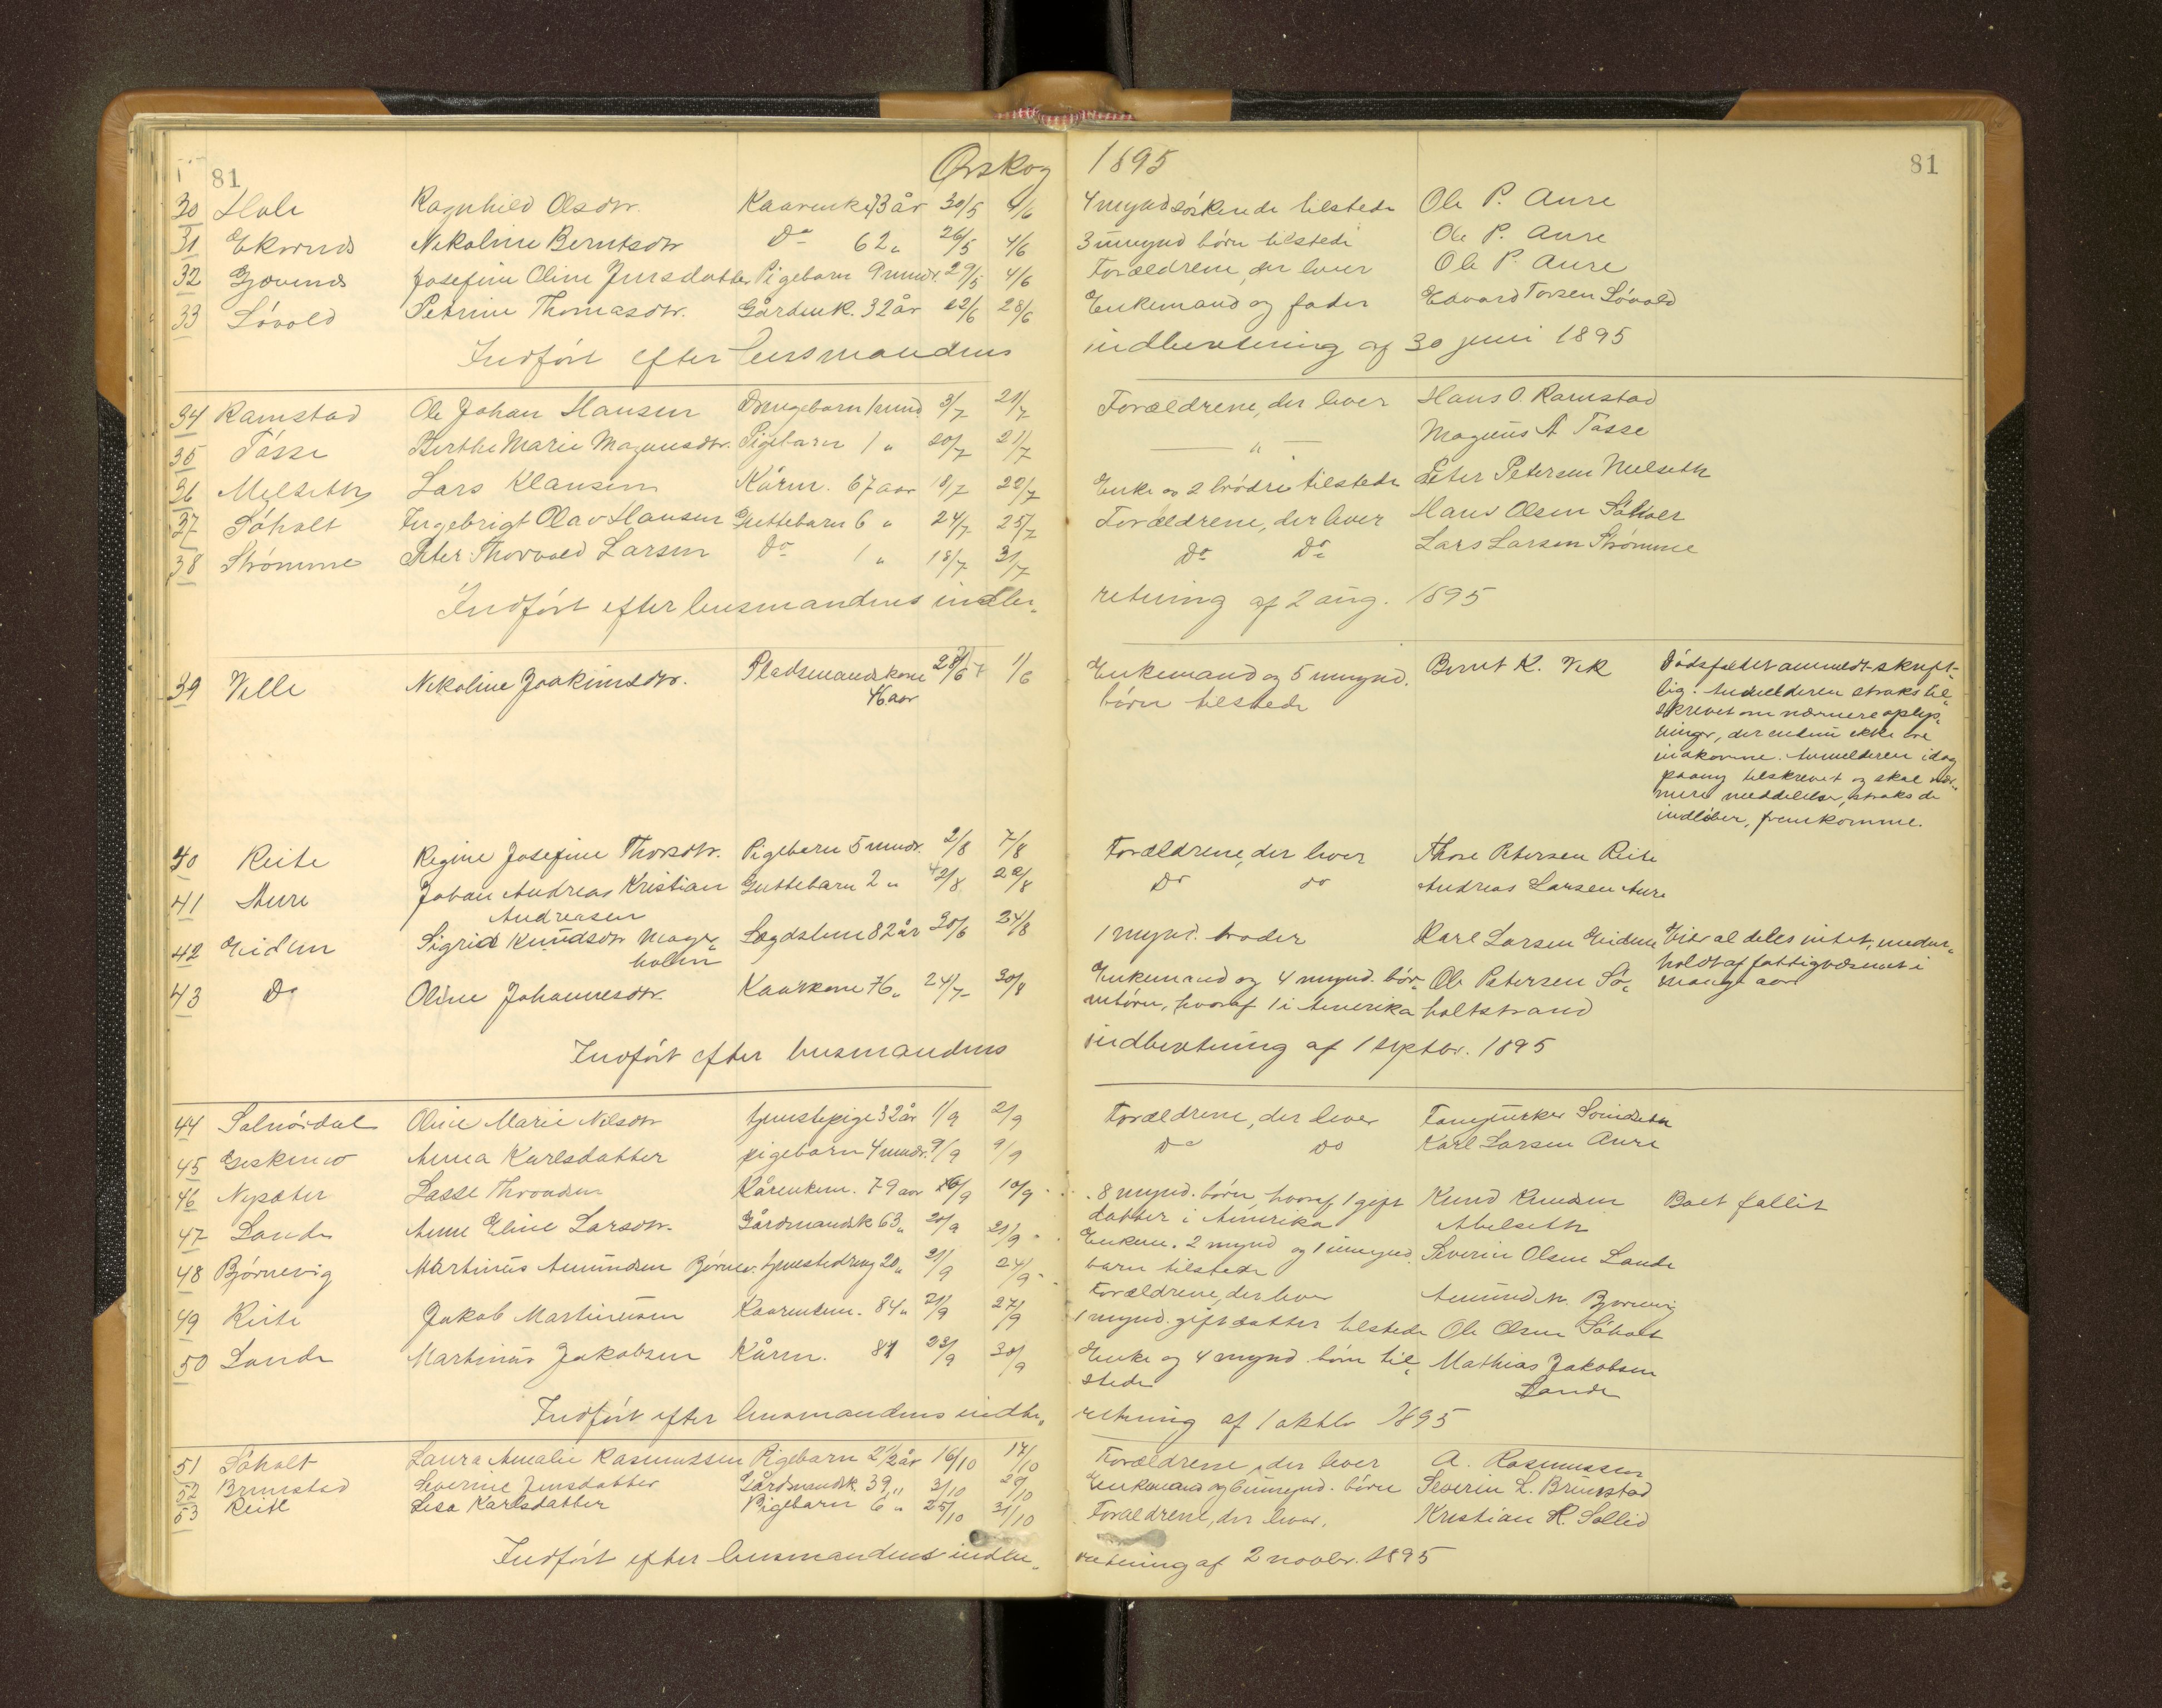 81 Ørskog 1895 81
30 Hole Ragnhild Olsdtr. Kaarenke 73 år 30/5 4/6 4 mynd søskende tilstede Ole P. Aure
31 Ekornes Nikoline Berntsdtr Do 62 " 26/5 4/6 3 umynd børn tilstede Ole P. Aure
32 Gjævenes Josefine Oline Jensdatter Pigebarn 9 mndr. 29/5 4/6 Forældrene, der lever Ole P. Aure
33 Løvold Petrine Thomasdtr. Gårdmk. 32 år 22/6 28/6 Enkemand og fader Edvard Torsen Løvold
Indført efter lensmandens indberetning af 30 juni 1895
34 Ramstad Ole Johan Hansen Drengebarn 1 mnd 3/7 21/7 Forældrene, der lever Hans O. Ramstad
35 Tøsse Berthe Marie Magnusdtr. Pigebarn 1 " 20/7 21/7 — " — Magnus A Tøsse
36 Melseth Lars Klausen Kårm. 67 aar 18/7 22/7 Enke og 2 brødre tilstede Peter Petersen Melseth
37 Søholt Ingebrigt Olav Hansen Guttebarn 6 " 24/7 25/7 Forældrene, der lever Hans Olsen Søholt
38 Strømme Peter Thorvald Larsen Do 1 " 18/7 31/7 Do Do Lars Larsen Strømme
Indført efter lensmandens indberetning af 2 aug. 1895
39 Velle Nikoline Joakimsdtr. Pladsemandskone 28/6 1/6 Enkemand og 5 umynd. Bernt K. Vik Dødsfaldet anmeldt skrift-
46 aar børn tilstede lig. Anmelderen straks til-
skrevet om nærmere oplys-
ninger, der endnu ikke ere
indkomne. Anmelderen idag
paany tilskrevet og skal nær-
mere meddelelse, straks de
indløber, fremkomme.
40 Reite Regine Josefine Thorsdtr. Pigebarn 5 mndr. 2/8 7/8 Forældrene, der lever Thore Petersen Reite
41 Aure Johan Andreas Kristian Guttebarn 2 " 22/8 Do do Andreas Larsen Aure
Andreasen
42 Eidem Sigrid Knudsdtr Mage- Lægdslem 82 år 30/6 24/8 1 mynd. broder Karl Larsen Eidem Eier aldeles intet, under-
holm holdt af fattigvæsenet i
43 Do Oline Johannesdtr. Kaarkone 76 " 24/7 30/8 Enkemand og 4 mynd. bør- Ole Petersen Sø- mange aar
hvoraf 1 i Amerika holtstrand
Indført efter lensmandens indberetning af 1 septbr. 1895
44 Solnørdal Oline Marie Nilsdtr tjenestepige 32 år 1/9 2/9 Forældrene, der lever
45 Giskemo Anna Karlsdatter pigebarn 4 mndr. 9/9 9/9 Do Do Karl Larsen Aure
46 Nysæter Lasse Throndsen Kårenkem. 79 aar 10/9 8 mynd. børn, hvoraf 1 gift Knud Knudsen Boet fallit
datter i Amerika Abelseth
47 Lande Anne Eline Larsdtr. Gårdmandsk 63 " 20/9 21/9 Enkem. 2 mynd og 1 umynd. Severin Olsen Lande
barn tilstede
48 Bjørnevig Martinus Amundsen Bjørnev. tjenestedreng 20 " 21/9 24/9 Forældrene, der lever Amund M. Bjørnevig
49 Reite Jakob Martinusen Kaarenkem. 84 " 21/9 27/9 1 mynd. gift datter tilstede Ole Olsen Søholt
50 Lande Martinus Jakobsen Kårm. 81 23/9 30/9 Enke og 4 mynd. børn til- Mathias Jakobsen
stede Lande
Indført efter lensmandens indberetning af 1 oktbr 1895
51 Søholt Laura Amalie Rasmussen Pigebarn 2 1/2 år 16/10 17/10 Forældrene, der lever A. Rasmussen
52 Brunstad Severine Jensdatter Gårdmandsk. 39 " 3/10 29/10 Enkemand og 6 umynd. børn Severin L. Brunstad
53 Reite Lisa Karlsdatter Pigebarn 6 " 25/10 31/10 Forældrene, der lever. Kristian R. Sollid
Indført efter lensmandens indberetning af 2 novbr. 1895